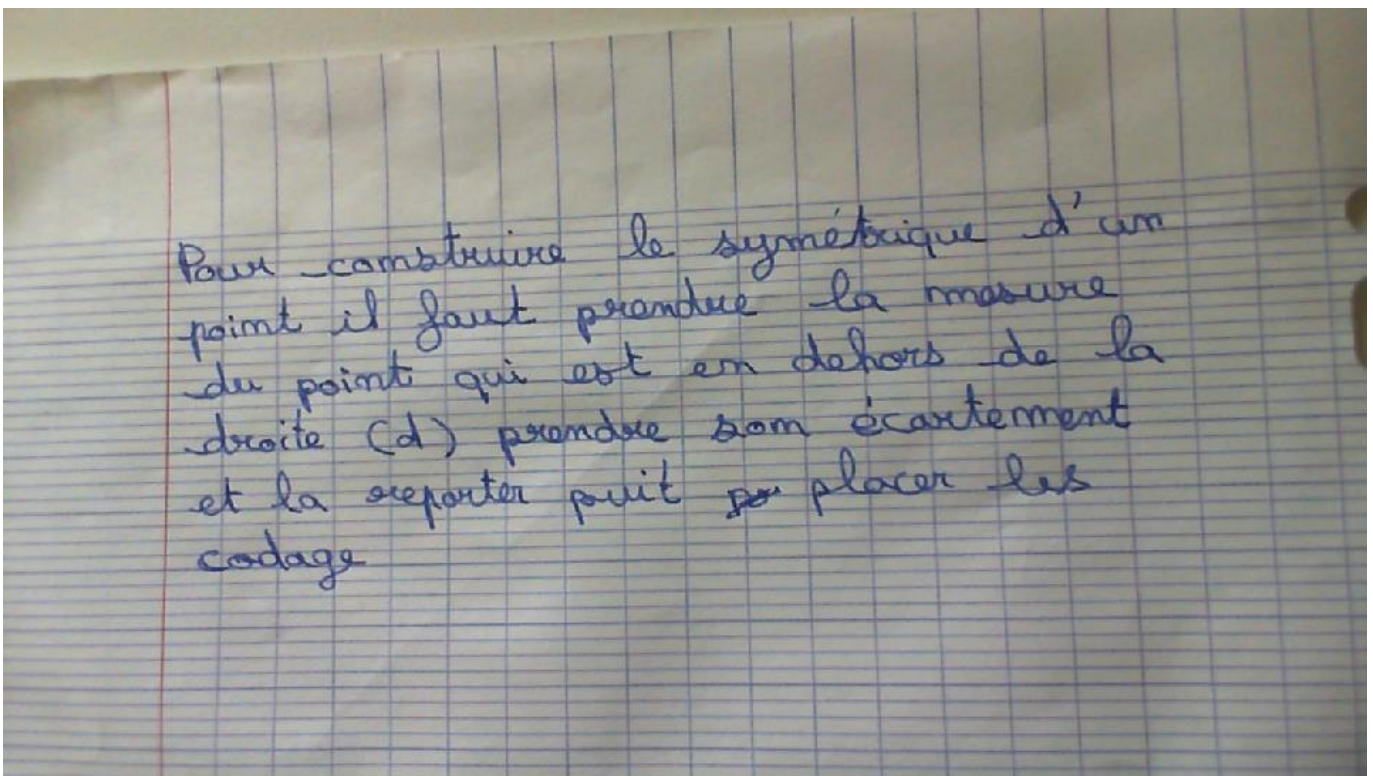 Pour construire le symétrique d'un
point il faut prendre la mesure
du point qui est en dehors de la
droite (d) prendre son écartement
et la reporter puit placer les
codage